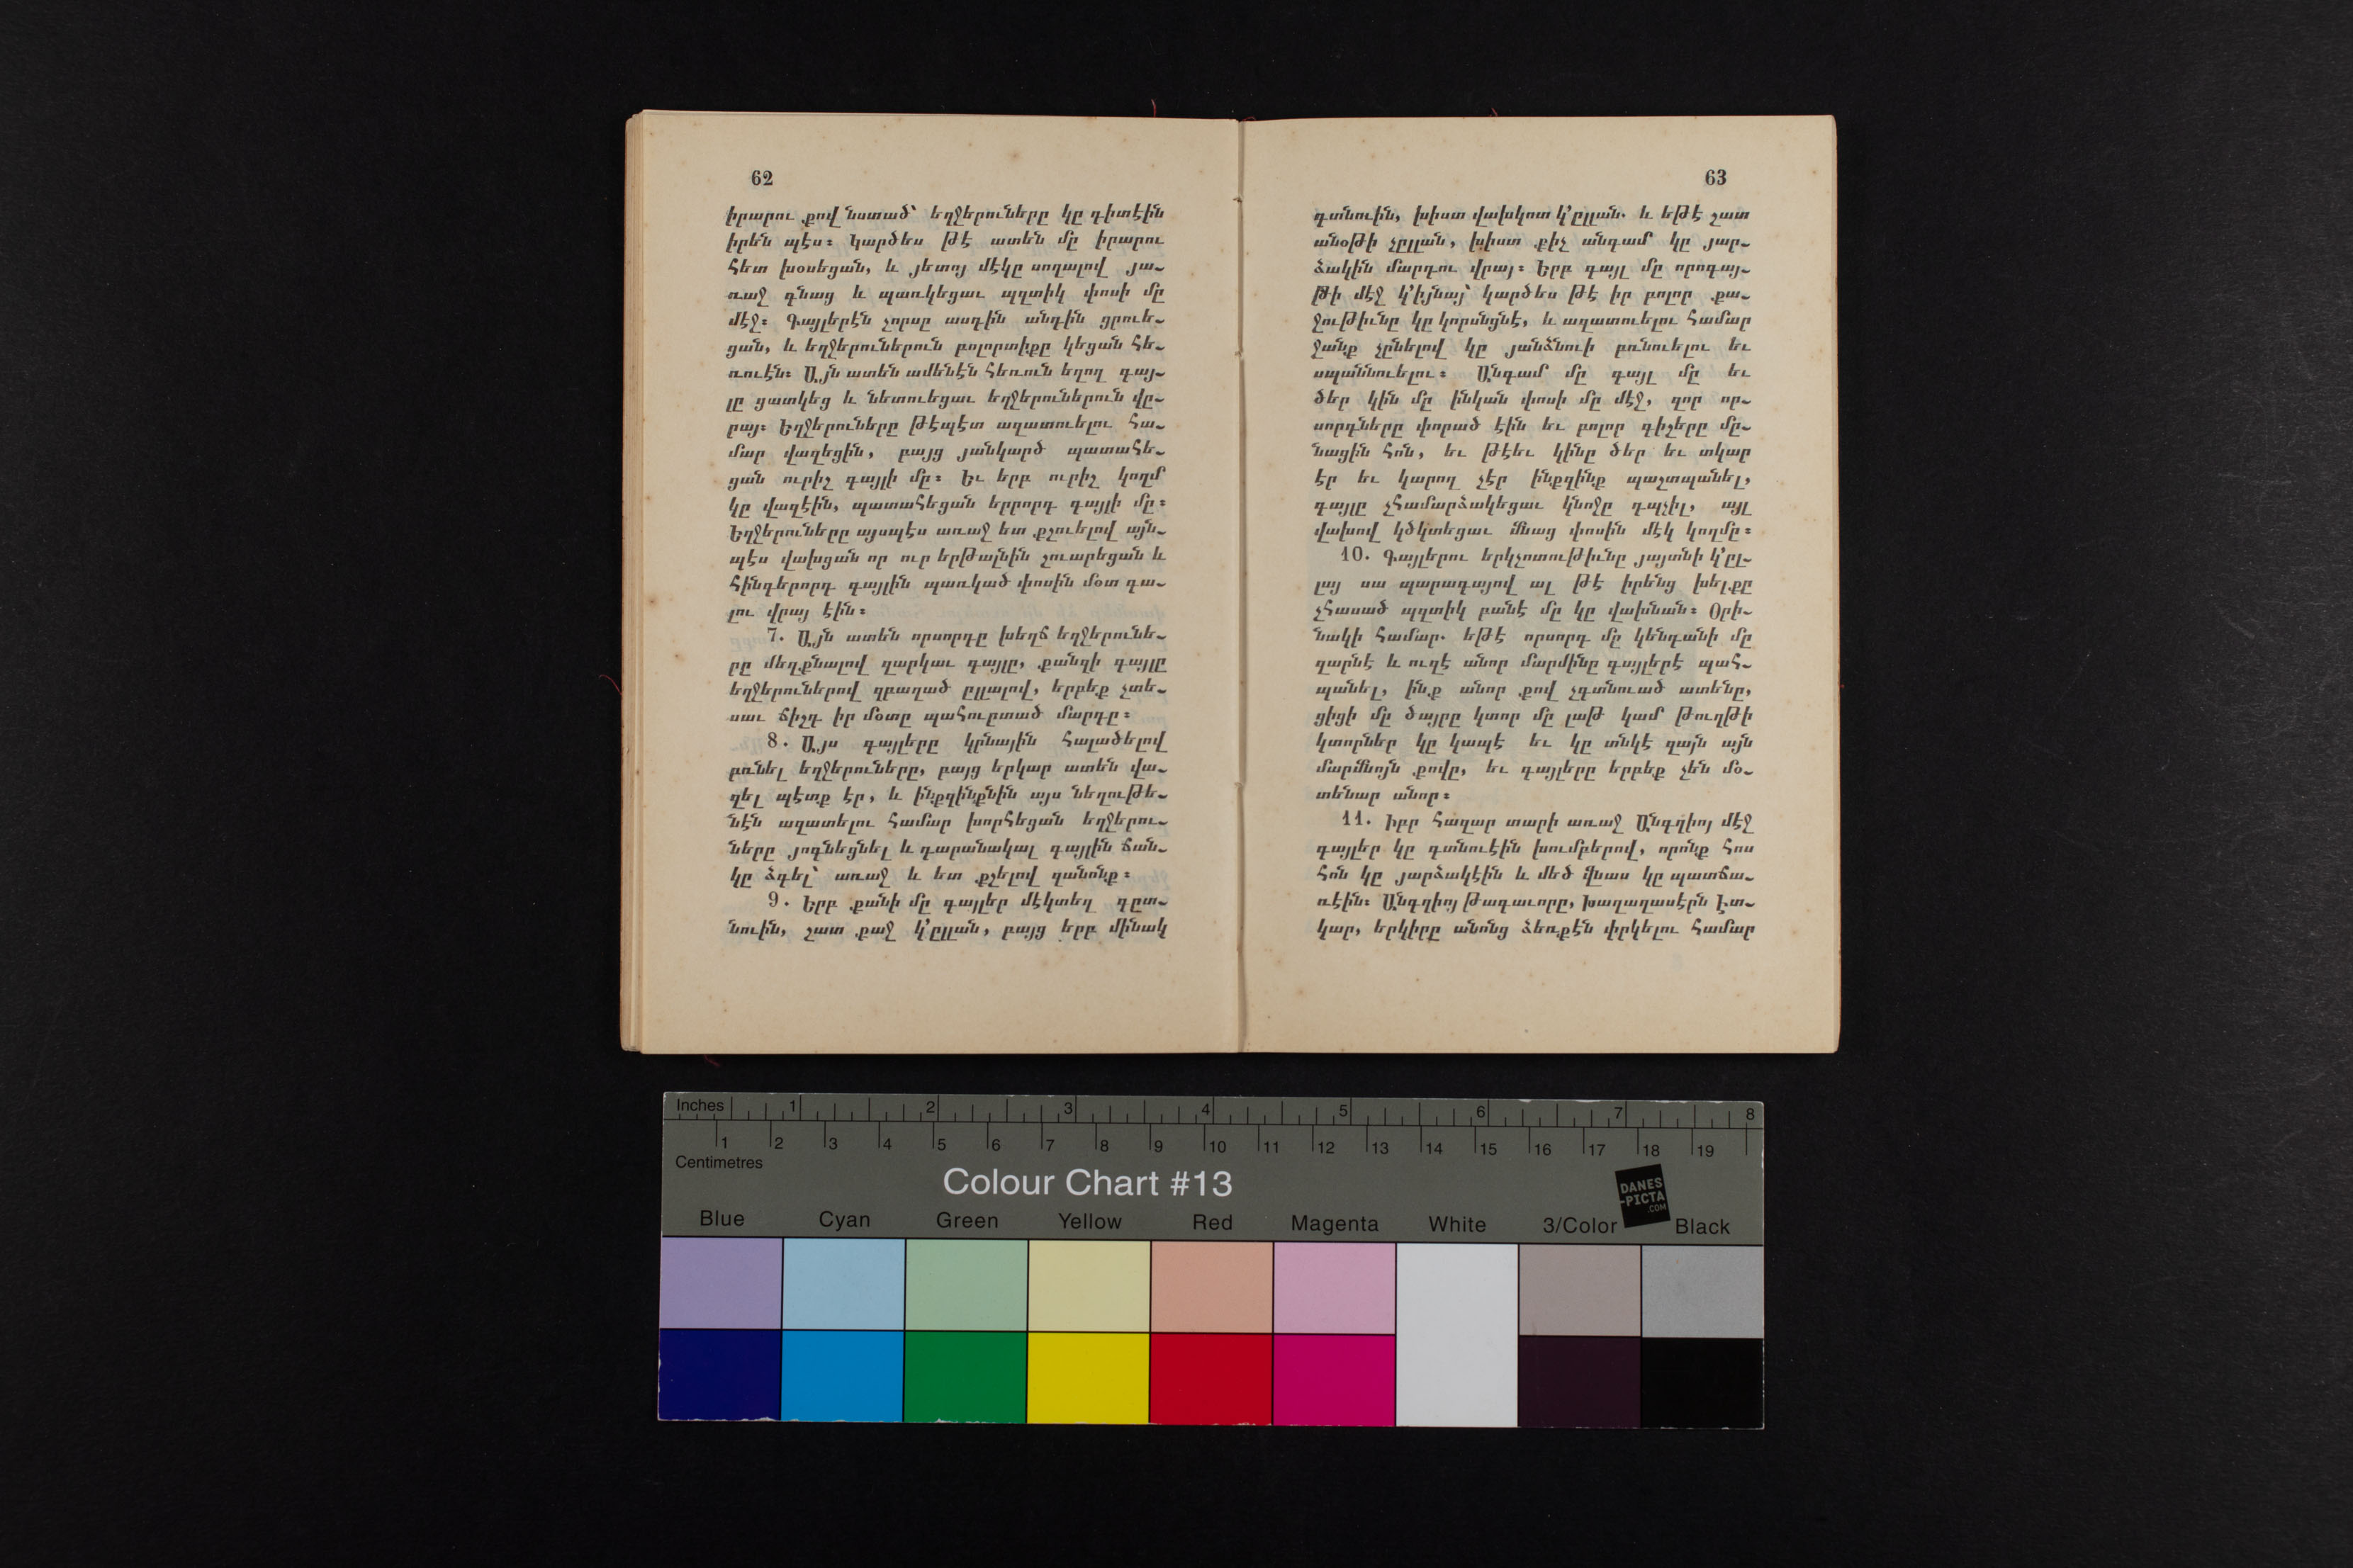 62
իրարու քով նստած՝ եղջերուները կը դիտէին
իրեն պէս։ Կարծես թէ ատեն մը իրարու
հետ խօսեցան, և յետոյ մէկը սողալով յա֊
ռաջ գնաց և պառկեցաւ պղտիկ փոսի մը
մէջ։ Գայլերէն չորսը ասդին անդին ցրուե֊
ցան, և եղջերուներուն բոլորտիքը կեցան հե֊
ռուէն։ Այն ատեն ամենէն հեռուն եղող գայ֊
լը ցատկեց և նետուեցաւ եղջերուներուն վը֊
րայ։ Եղջերուները թէպէտ ազատուելու հա֊
մար վազեցին, բայց յանկարծ պատահե֊
ցան ուրիշ գայլի մը։ Եւ երբ ուրիշ կողմ
կը վազէին, պատահեցան երրորդ գայլի մը։
Եղջերուները այսպէս առաջ ետ քշուելով այն֊
պէս վախցան որ ուր երթալնին շուարեցան և
հինգերորդ գայլին պառկած փոսին մօտ գա֊
լու վրայ էին։
7. Այն ատեն որսորդը խեղճ եղջերունե֊
րը մեղքնալով զարկաւ գայլը, քանզի գայլը
եղջերուներով զբաղած ըլլալով, երբեք չտե֊
սաւ ճիշդ իր մօտը պահուըտած մարդը։
8. Այս գայլերը կրնային հալածելով
բռնել եղջերուները, բայց երկար ատեն վա֊
զել պէտք էր, և ինքզինքնին այս նեղութե֊
նէն ազատելու համար խորհեցան եղջերու֊
ները յոգնեցնել և դարանակալ գայլին ճան֊
կը ձգել՝ առաջ և ետ քշելով զանոնք։
9. Երբ քանի մը գայլեր մէկտեղ գըտ֊
նուին, շատ քաջ կ՚ըլլան, բայց երբ մինակ
63
գտնուին, խիստ վախկոտ կ՚ըլլան. և եթէ շատ
անօթի չըլլան, խիստ քիչ անգամ կը յար֊
ձակին մարդու վրայ։ Երբ գայլ մը որոգայ֊
թի մէջ կ՚իյնայ՝ կարծես թէ իր բոլոր քա֊
ջութիւնը կը կորսնցնէ, և ազատուելու համար
ջանք չընելով կը յանձնուի բռնուելու եւ
սպաննուելու։ Անգամ մը գայլ մը եւ
ծեր կին մը ինկան փոսի մը մէջ, զոր որ֊
սորդները փորած էին եւ բոլոր գիշերը մը֊
նացին հոն, եւ թէեւ կինը ծեր եւ տկար
էր եւ կարող չէր ինքզինք պաշտպանել,
գայլը չհամարձակեցաւ կնոջը դպչիլ, այլ
վախով կծկտեցաւ մնաց փոսին մէկ կողմը։
10. Գայլերու երկչոտութիւնը յայտնի կ՚ըլ֊
լայ սա պարագայով ալ թէ իրենց խելքը
չհասած պղտիկ բանէ մը կը վախնան։ Օրի֊
նակի համար. եթէ որսորդ մը կենդանի մը
զարնէ և ուզէ անոր մարմինը գայլերէ պահ֊
պանել, ինք անոր քով չգտնուած ատենը,
ցիցի մը ծայրը կտոր մը լաթ կամ թուղթի
կտորներ կը կապէ եւ կը տնկէ զայն այն
մարմնոյն քովը, եւ գայլերը երբեք չեն մօ֊
տենար անոր։
11. Իբր հազար տարի առաջ Անգղիոյ մէջ
գայլեր կը գտնուէին խումբերով, որոնք հոս
հոն կը յարձակէին և մեծ վնաս կը պատճա֊
ռէին։ Անգղիոյ թագաւորը, Խաղաղասէրն Էտ֊
կար, երկիրը անոնց ձեռքէն փրկելու համար
Inches 1 2 3 4 5 6 7 8
1 2 3 4 5 6 7 8 9 10 11 12 13 14 15 16 17 18 19
Centimetres
Colour Chart #13
DANES
-PICTA
.COM
Blue Cyan Green Yellow Red Magenta White 3/Color Black